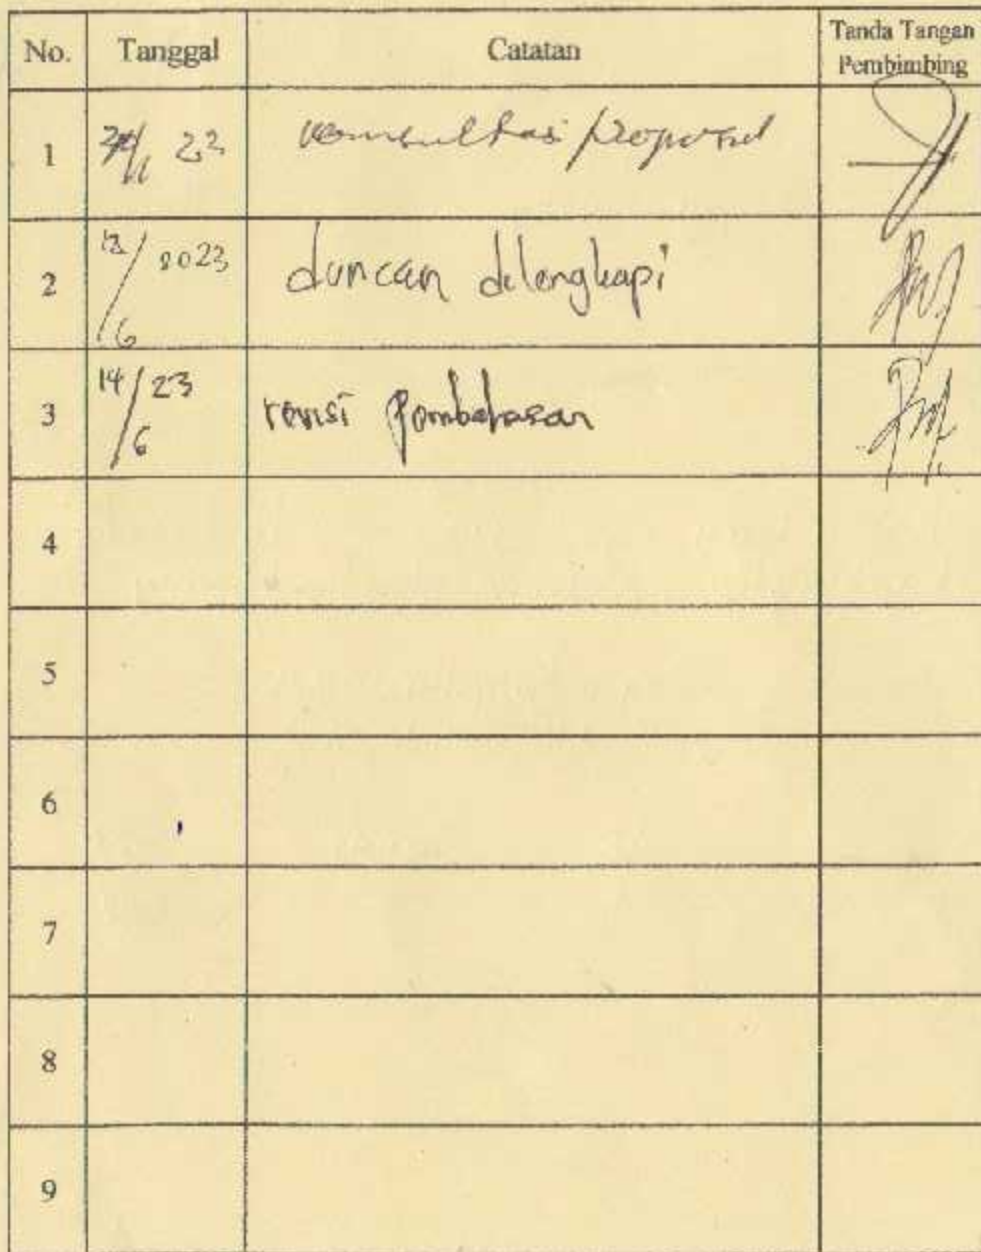 No. Tanggal Catatan Tanda Tangan
Pembimbing
1 22 konsultasi proposal
2 13/6 2023 duncan dilengkapi
3 14/6 23 revisi pembahasan
4
5
6
7
8
9